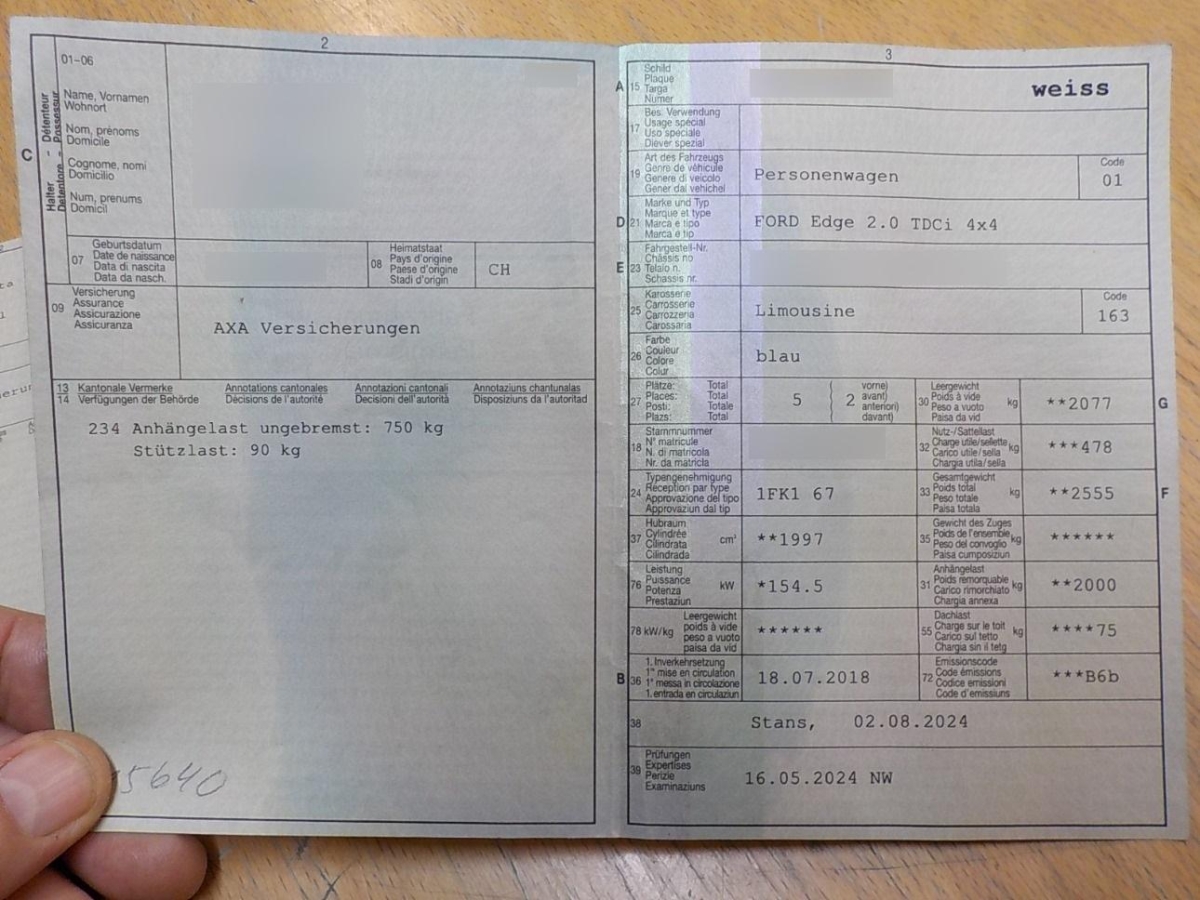 2
01-06
C
Halter - Détenteur
Detentore - Possessur
Name, Vornamen
Wohnort
Nom, prénoms
Domicile
Cognome, nomi
Domicilio
Num, prenums
Domicil
07
Geburtsdatum
Date de naissance
Data di nascita
Data da nasch.
08
Heimatstaat
Pays d'origine
Paese d'origine
Stadi d'origin
CH
09
Versicherung
Assurance
Assicurazione
Assicuranza
AXA Versicherungen
13 Kantonale Vermerke Annotations cantonales Annotazioni cantonali Annotaziuns chantunalas
14 Verfügungen der Behörde Décisions de l'autorité Decisioni dell'autorità Disposiziuns da l'autoritad
234 Anhängelast ungebremst: 750 kg
Stützlast: 90 kg
5640
3
A 15
Schild
Plaque
Targa
Numer
weiss
17
Bes. Verwendung
Usage spécial
Uso speciale
Diever spezial
19
Art des Fahrzeugs
Genre de véhicule
Genere di veicolo
Gener dal vehichel
Personenwagen
Code
01
D 21
Marke und Typ
Marque et type
Marca e tipo
Marca e tip
FORD Edge 2.0 TDCi 4x4
E 23
Fahrgestell-Nr.
Châssis no
Telaio n.
Schassis nr.
25
Karosserie
Carrosserie
Carrozzeria
Carossaria
Limousine
Code
163
26
Farbe
Couleur
Colore
Colur
blau
27
Plätze: Total
Places: Total
Posti: Totale
Plazs: Total
5 ( 2 vorne)
( avant)
( anteriori)
( davant)
30
Leergewicht
Poids à vide
Peso a vuoto
Paisa da vid
kg
**2077
G
18
Stammnummer
N° matricule
N. di matricola
Nr. da matricla
32
Nutz-/Sattellast
Charge utile/sellette
Carico utile/sella
Chargia utila/sella
kg
***478
24
Typengenehmigung
Réception par type
Approvazione del tipo
Approvaziun dal tip
1FK1 67
33
Gesamtgewicht
Poids total
Peso totale
Paisa totala
kg
**2555
F
37
Hubraum
Cylindrée
Cilindrata
Cilindrada
cm³
**1997
35
Gewicht des Zuges
Poids de l'ensemble
Peso del convoglio
Paisa cumposiziun
kg
******
76
Leistung
Puissance
Potenza
Prestaziun
kW
*154.5
31
Anhängelast
Poids remorquable
Carico rimorchiato
Chargia annexa
kg
**2000
78 kW/kg
Leergewicht
poids à vide
peso a vuoto
paisa da vid
******
55
Dachlast
Charge sur le toit
Carico sul tetto
Chargia sin il tetg
kg
****75
B 36
1. Inverkehrsetzung
1re mise en circulation
1a messa in circolazione
1. entrada en circulaziun
18.07.2018
72
Emissionscode
Code émissions
Codice emissioni
Code d'emissiuns
***B6b
38
Stans, 02.08.2024
39
Prüfungen
Expertises
Perizie
Examinaziuns
16.05.2024 NW